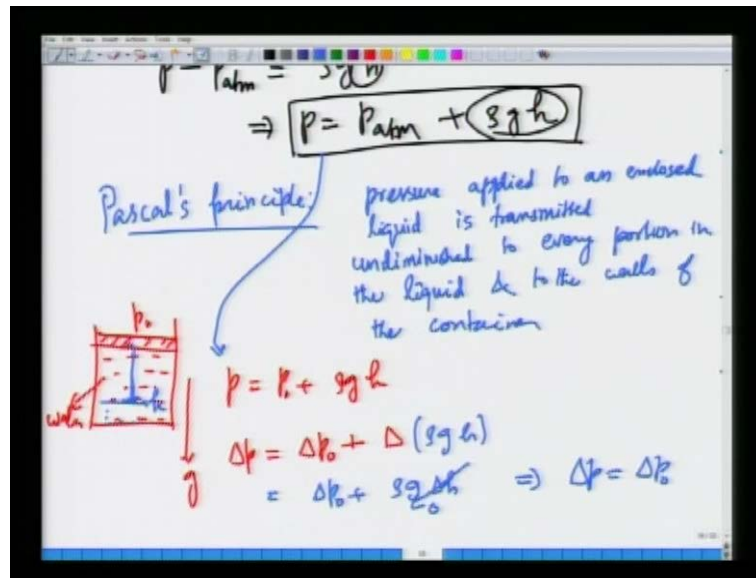 ⇒ p = Patm + ρgh
Pascal's principle:
pressure applied to an enclosed
liquid is transmitted
undiminished to every portion in
the liquid & to the walls of
the container
p₀
h
water
g
p = p₀ + ρgh
Δp = Δp₀ + Δ(ρgh)
= Δp₀ + ρgΔh ⇒ Δp = Δp₀